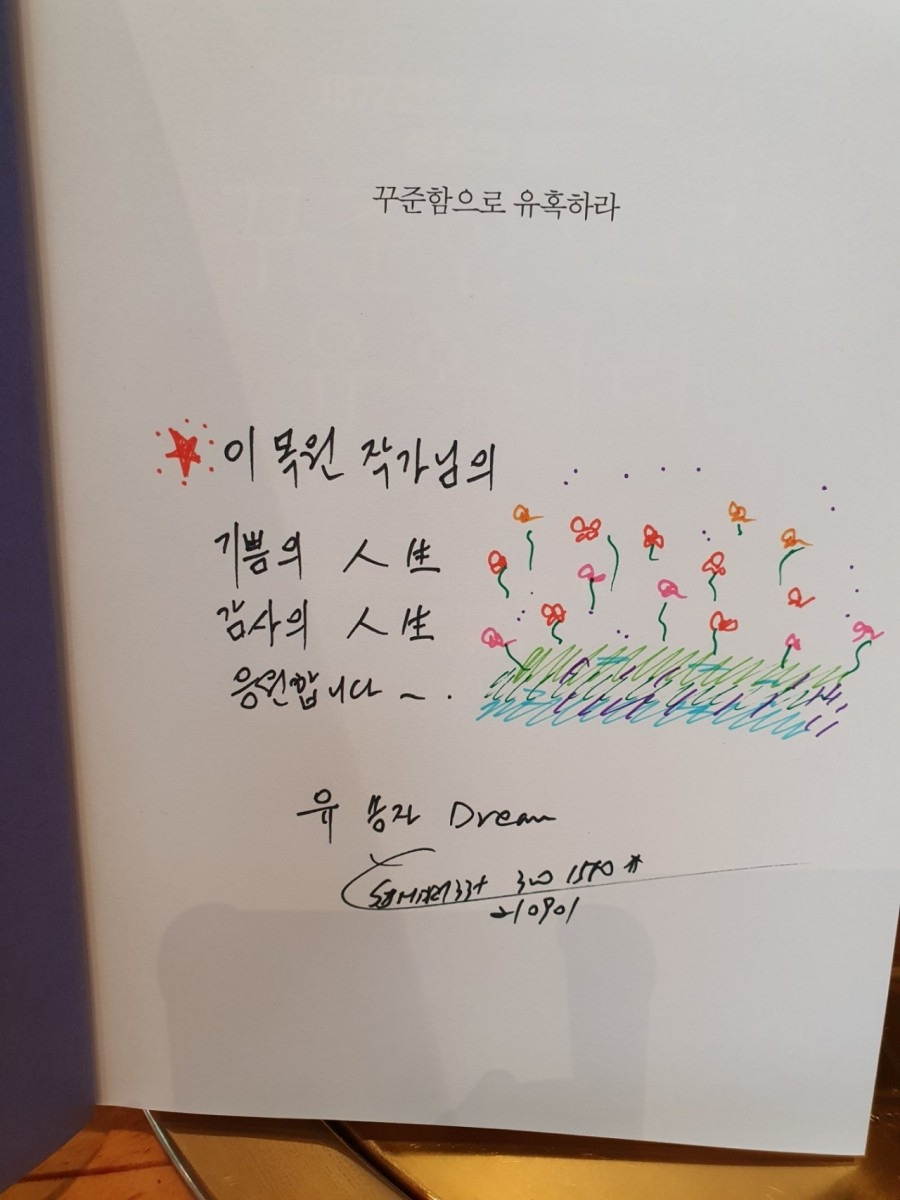 꾸준함으로 유혹하라
이 목원 작가님의
기쁨의 人生
감사의 人生
응원합니다 ~.
유 Dream
210901